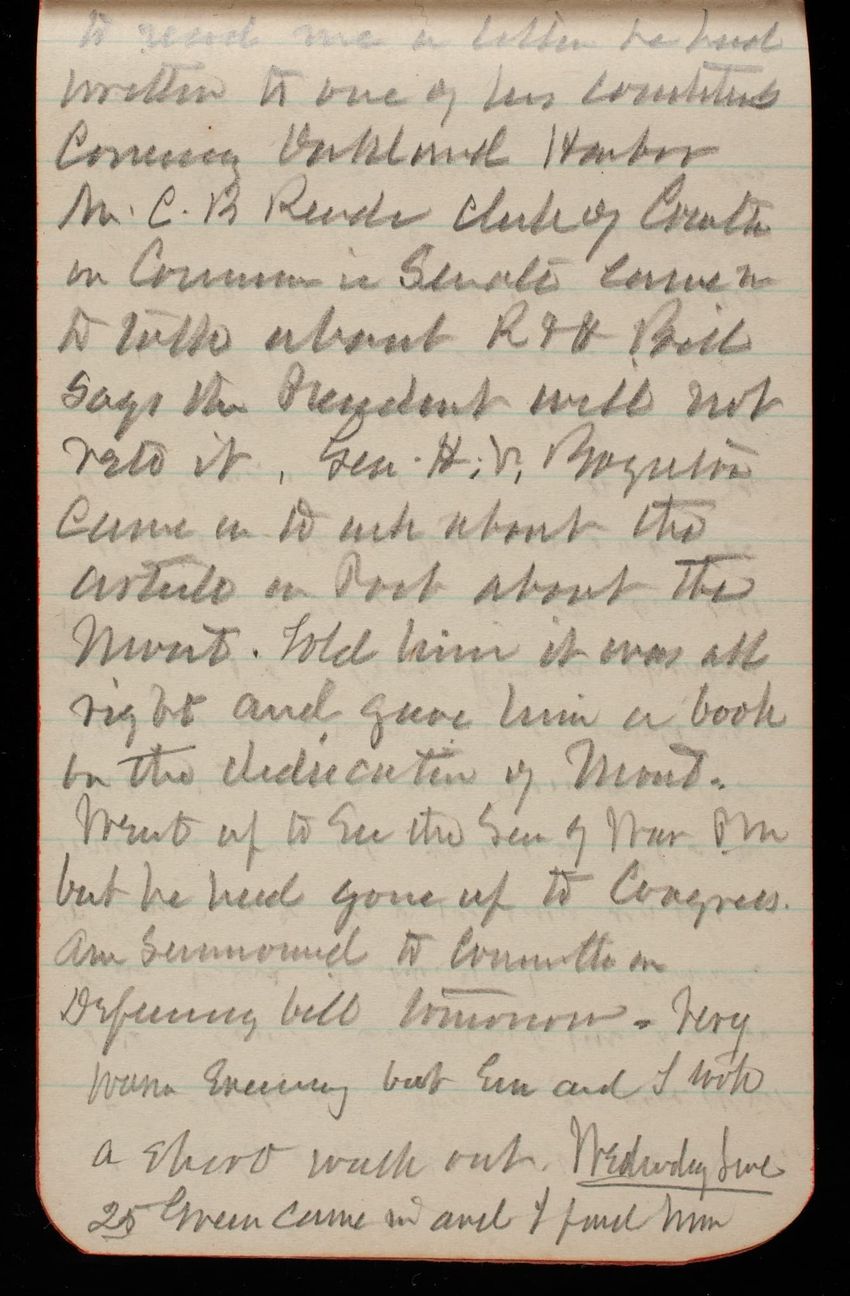 to read me a letter he had
written to one of his constituents
Concerning Oakland Harbor
Mr. C. B Reade Clerk of Committee
on Commerce in Senate came in
to talk about R & H Bill
says the President will not
veto it, Gen. H. V. Boynton
came in to ask about the
article in Post about the
Monut. Told him it was all
right and gave him a book
on the dedication of Monut.
Went up to See the Sec of War P.M
but he had gone up to Congress.
am Summoned to Committee on
Deficiency bill tomorrow. Very
warm Evening but Em and I took
a short walk out. Wednesday June
25 Green came in and I paid him